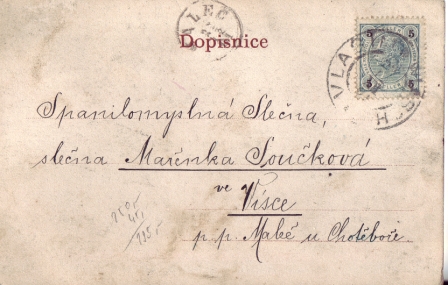 MALEČ
Dopisnice
5 5
5 5
VLA
Spanilomyslná Slečna,
slečna Mařenka Součková
ve
Vísce
p. p. Maleč u Chotěboře.